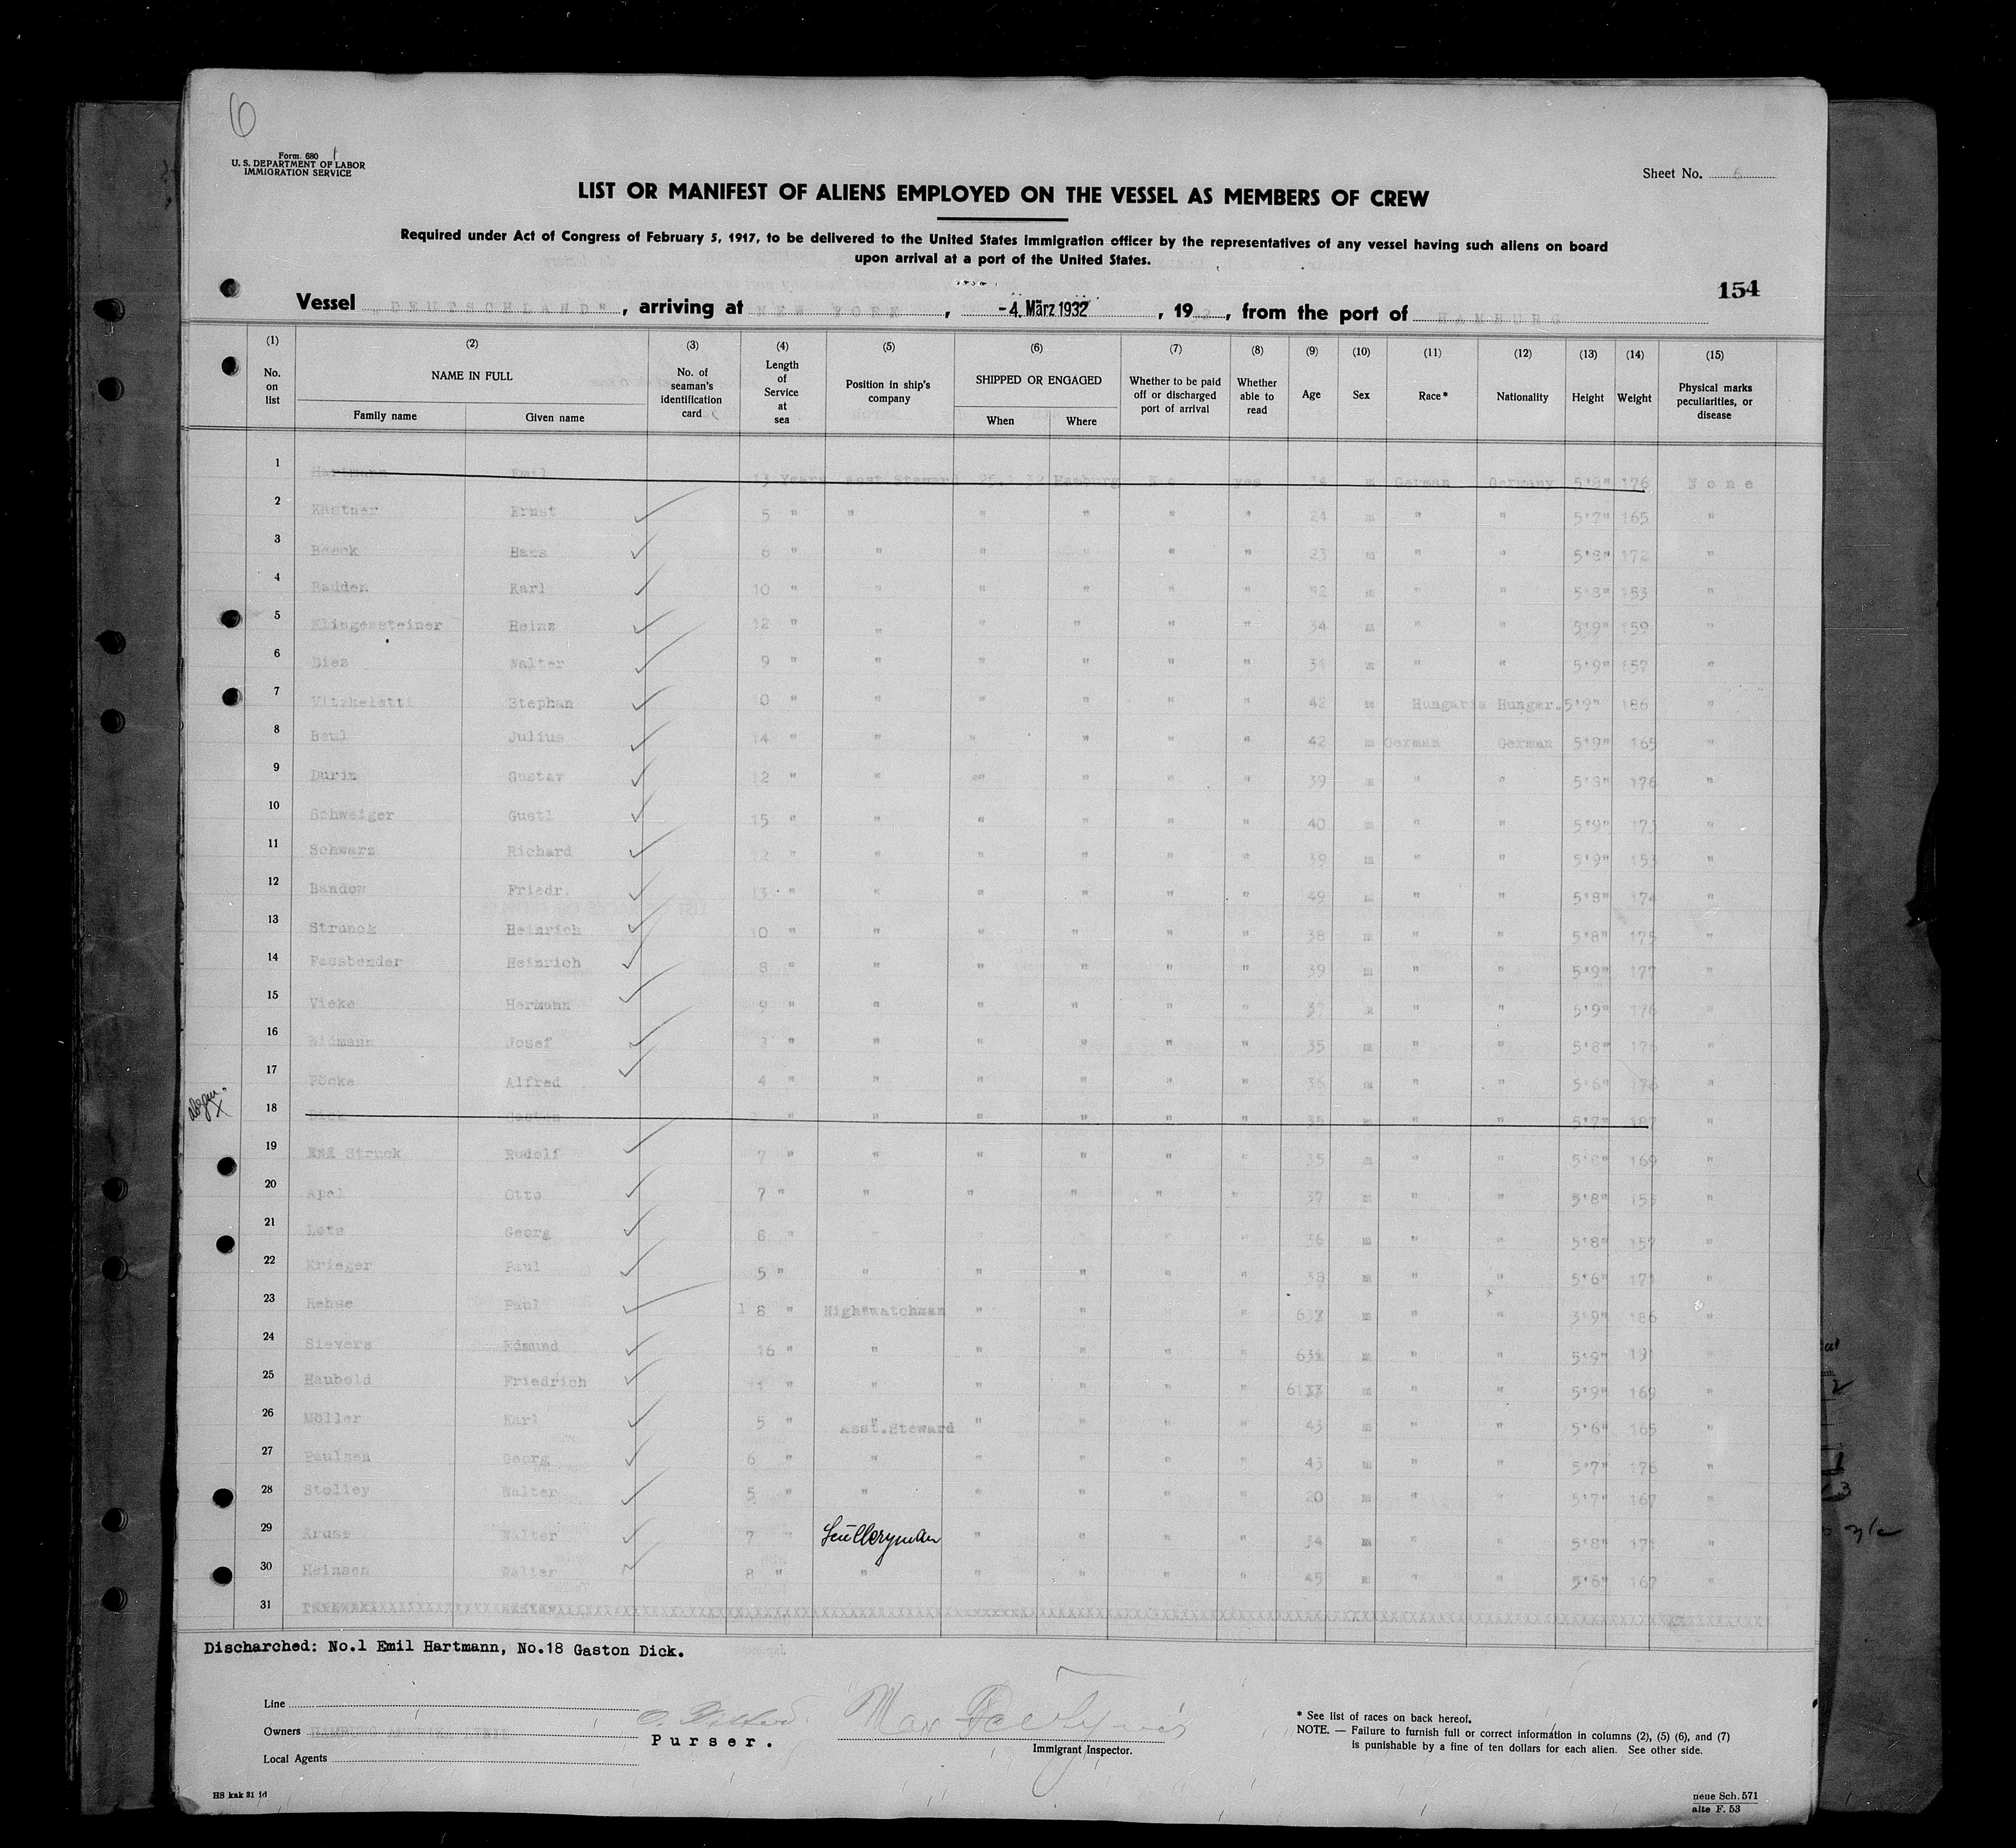 6
Form. 680 1
U. S. DEPARTMENT OF LABOR
IMMIGRATION SERVICE
Sheet No. 6
LIST OR MANIFEST OF ALIENS EMPLOYED ON THE VESSEL AS MEMBERS OF CREW
Required under Act of Congress of February 5, 1917, to be delivered to the United States Immigration officer by the representatives of any vessel having such aliens on board
upon arrival at a port of the United States.
154
Vessel "DEUTSCHLAND", arriving at NEW YORK, -4. März 1932, 19 32, from the port of HAMBURG
(1) (2) (3) (4) (5) (6) (7) (8) (9) (10) (11) (12) (13) (14) (15)
No. on list NAME IN FULL Family name Given name No. of seaman's identification card Length of Service at sea Position in ship's company SHIPPED OR ENGAGED When Where Whether to be paid off or discharged port of arrival Whether able to read Age Sex Race* Nationality Height Weight Physical marks peculiarities, or disease
1 Hartmann Emil 13 Years Asst.Steward Hamburg No yes 34 m German Germany 5'8" 176 None
2 Kästner Ernst 5 " " " " " " 24 m " " 5'7" 165 "
3 Boeck Hans 6 " " " " " " 23 m " " 5'8" 172 "
4 Radden Karl 10 " " " " " " 32 m " " 5'8" 153 "
5 Klingensteiner Heinz 12 " " " " " " 34 m " " 5'9" 159 "
6 Diez Walter 9 " " " " " " 31 m " " 5'9" 157 "
7 Stephan 10 " " " " " " 42 m Hungaria Hunger. 5'9" 186 "
8 Beul Julius 14 " " " " " " 42 m German German 5'9" 165 "
9 Durin Gustav 12 " " " " " " 39 m " " 5'8" 176 "
10 Schweiger Gustl 15 " " " " " " 40 m " " 5'9" 173 "
11 Schwarz Richard 12 " " " " " " 39 m " " 5'9" 153 "
12 Bandow Friedr. 13 " " " " " " 49 m " " 5'8" 174 "
13 Strunck Heinrich 10 " " " " " " 38 m " " 5'8" 175 "
14 Fassbender Heinrich 8 " " " " " " 39 m " " 5'9" 177 "
15 Vieke Hermann 9 " " " " " " 37 m " " 5'9" 176 "
16 Josef 3 " " " " " " 35 m " " 5'8" 176 "
17 Alfred 4 " " " " " " 36 m " " 5'6" 176 "
18 Dick Gaston " " " " " " 35 m " " 5'7" 187 "
19 Struck Rudolf 7 " " " " " " 35 m " " 5'8" 169 "
20 Apel Otto 7 " " " " " " 37 m " " 5'8" 153 "
21 Georg 8 " " " " " " 36 m " " 5'8" 157 "
22 Krieger Paul 5 " " " " " " 38 m " " 5'6" 171 "
23 Rehse Paul 18 " Nightwatchman " " " " m " " 5'9" 186 "
24 Sievers Edmund 16 " " " " " " m " " 5'9" 191 "
25 Haubold Friedrich 11 " " " " " " m " " 5'9" 169 "
26 Möller Karl 5 " Asst.Steward " " " " 43 m " " 5'6" 165 "
27 Paulsen Georg 6 " " " " " " 43 m " " 5'7" 176 "
28 Stolley Walter 5 " " " " " " 20 m " " 5'7" 167 "
29 Kruse Walter 7 " Scülleryman " " " " 34 m " " 5'8" 171 "
30 Heinsen Walter 8 " " " " " " 45 m " " 5'6" 167 "
31
Discharched: No.1 Emil Hartmann, No.18 Gaston Dick.
Line
Owners HAMBURG AMERIKA LINIE
Local Agents
Purser.
Max
Immigrant Inspector.
* See list of races on back hereof.
NOTE. — Failure to furnish full or correct information in columns (2), (5) (6), and (7)
is punishable by a fine of ten dollars for each alien. See other side.
HS kak 31 1d
neue Sch. 571
alte F. 53